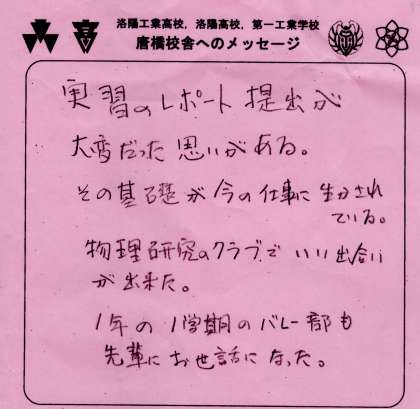 洛陽工業高校，洛陽高校，第一工業学校
唐橋校舎へのメッセージ
実習のレポート提出が
大変だった思いがある。
その基礎が今の仕事に生かされ
ている。
物理研究のクラブで いい出合い
が出来た。
1年の1学期のバレー部も
先輩にお世話になった。